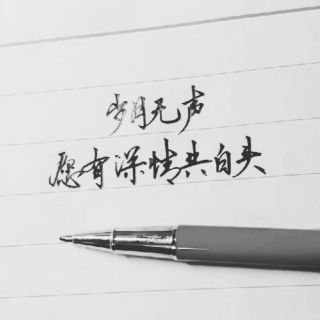 岁月无声
愿有深情共白头